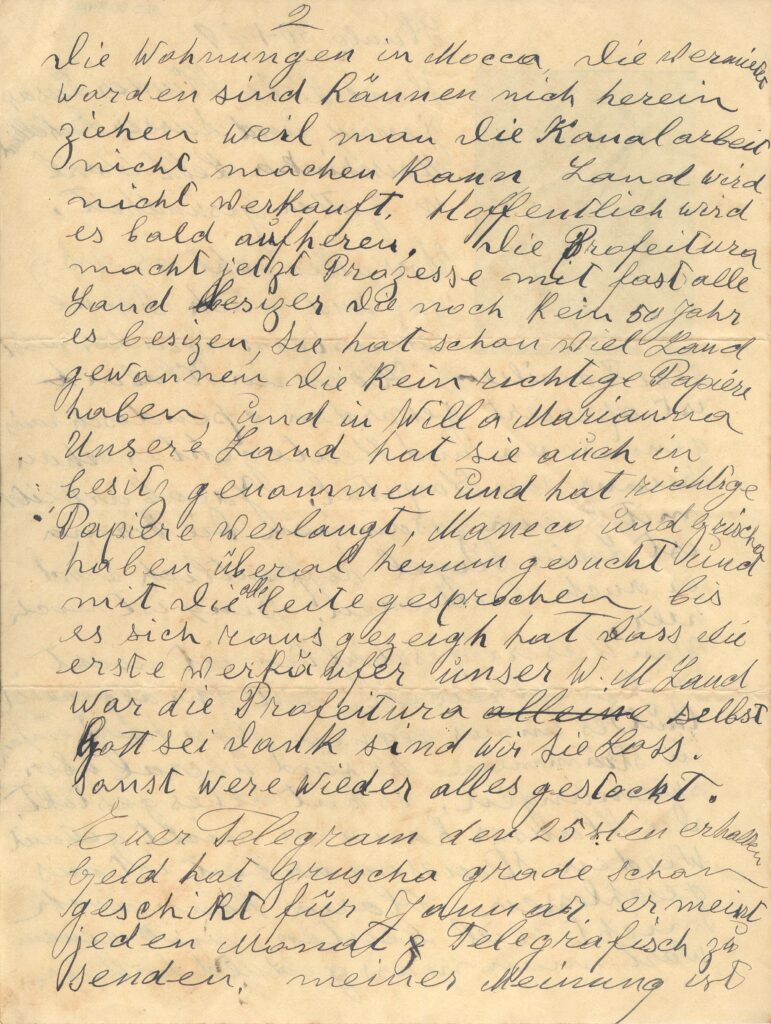 2
Die Wohnungen in Mocca, die vermietet
worden sind kännen nich herein
ziehen weil man die Kanalarbeit
nicht machen kann, Land wird
nicht verkauft. Hoffentlich wird
es bald aufheren. Die Profeitura
macht jetzt Prozesse mit fast alle
Land besizer die noch kein 50 Jahr
es besizen, sie hat schon viel Land
gewonnen die kein richtige Papiere
haben, und in Willa Marianna
Unsere Land hat sie auch in
besitz genommen und hat richtige
Papiere verlangt, Maneco und Grischa
haben überal herum gesucht und
mit die alte leite gesprochen, bis
es sich raus gezeigh hat dass die
erste verkäufer unser W. M Land
war die Profeitura alleine selbst
Gott sei dank sind wir sie Loss.
sonst were wieder alles gestockt.
Euer Telegram den 25sten erhalten
Geld hat Gruscha grade schon
geschikt für Januar, er meint
jeden Monat z Telegrafisch zu
senden. meiner Meinung ist